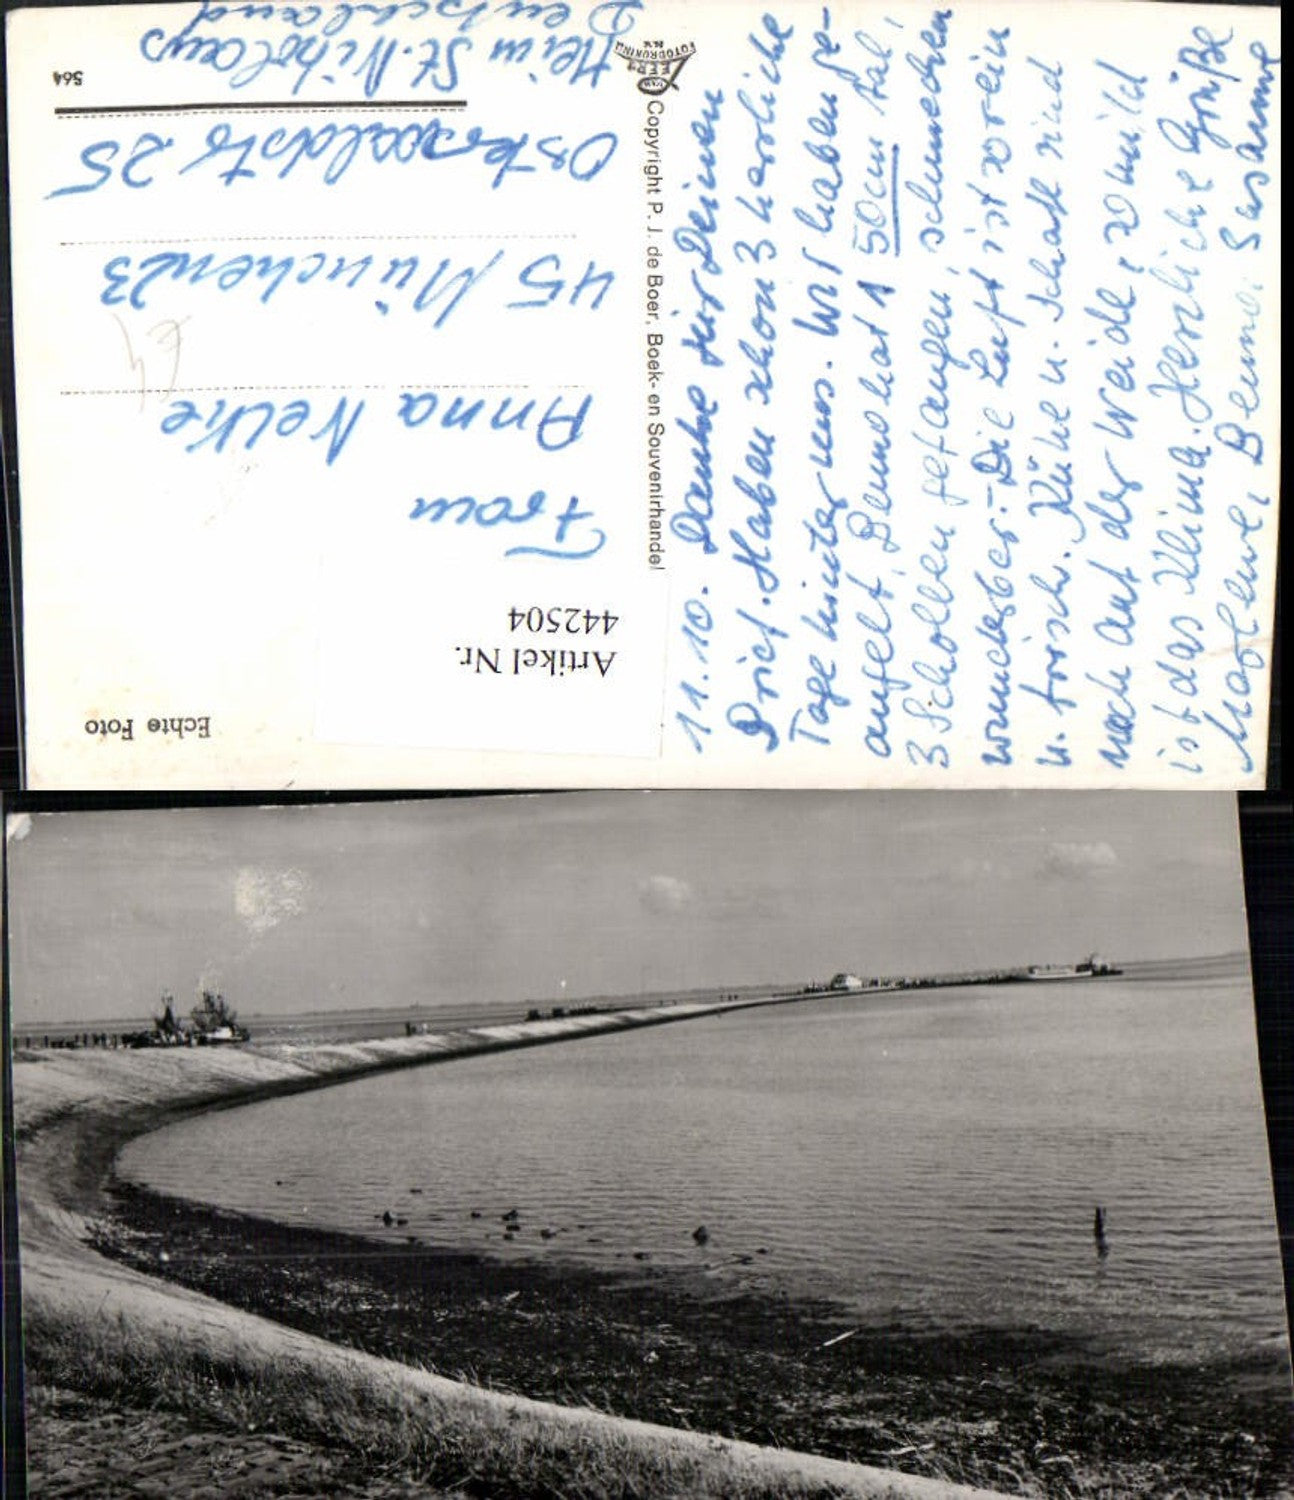 11.10. Danke für Deinen
Brief. Haben schon 3 herrliche
Tage hinter uns. Wir haben ge-
angelt, Benno hat 1 50cm Aal,
3 Schollen gefangen, schmecken
wunderbar. - Die Luft ist so rein
u. frisch. Kühe u. Schafe sind
noch auf der Weide, so mild
ist das Klima. Herzliche Grüße
Marlene, Benno, Susanne
Copyright P. J. de Boer, Boek- en Souvenirhandel
VAN
LEER'S
FOTODRUKIND.
N.V.
Echte Foto
Artikel Nr.
442504
Frau
Anna Nelke
45 München 23
Osterwaldstr 25
564
Heim St. Nikolaus
Deutschland